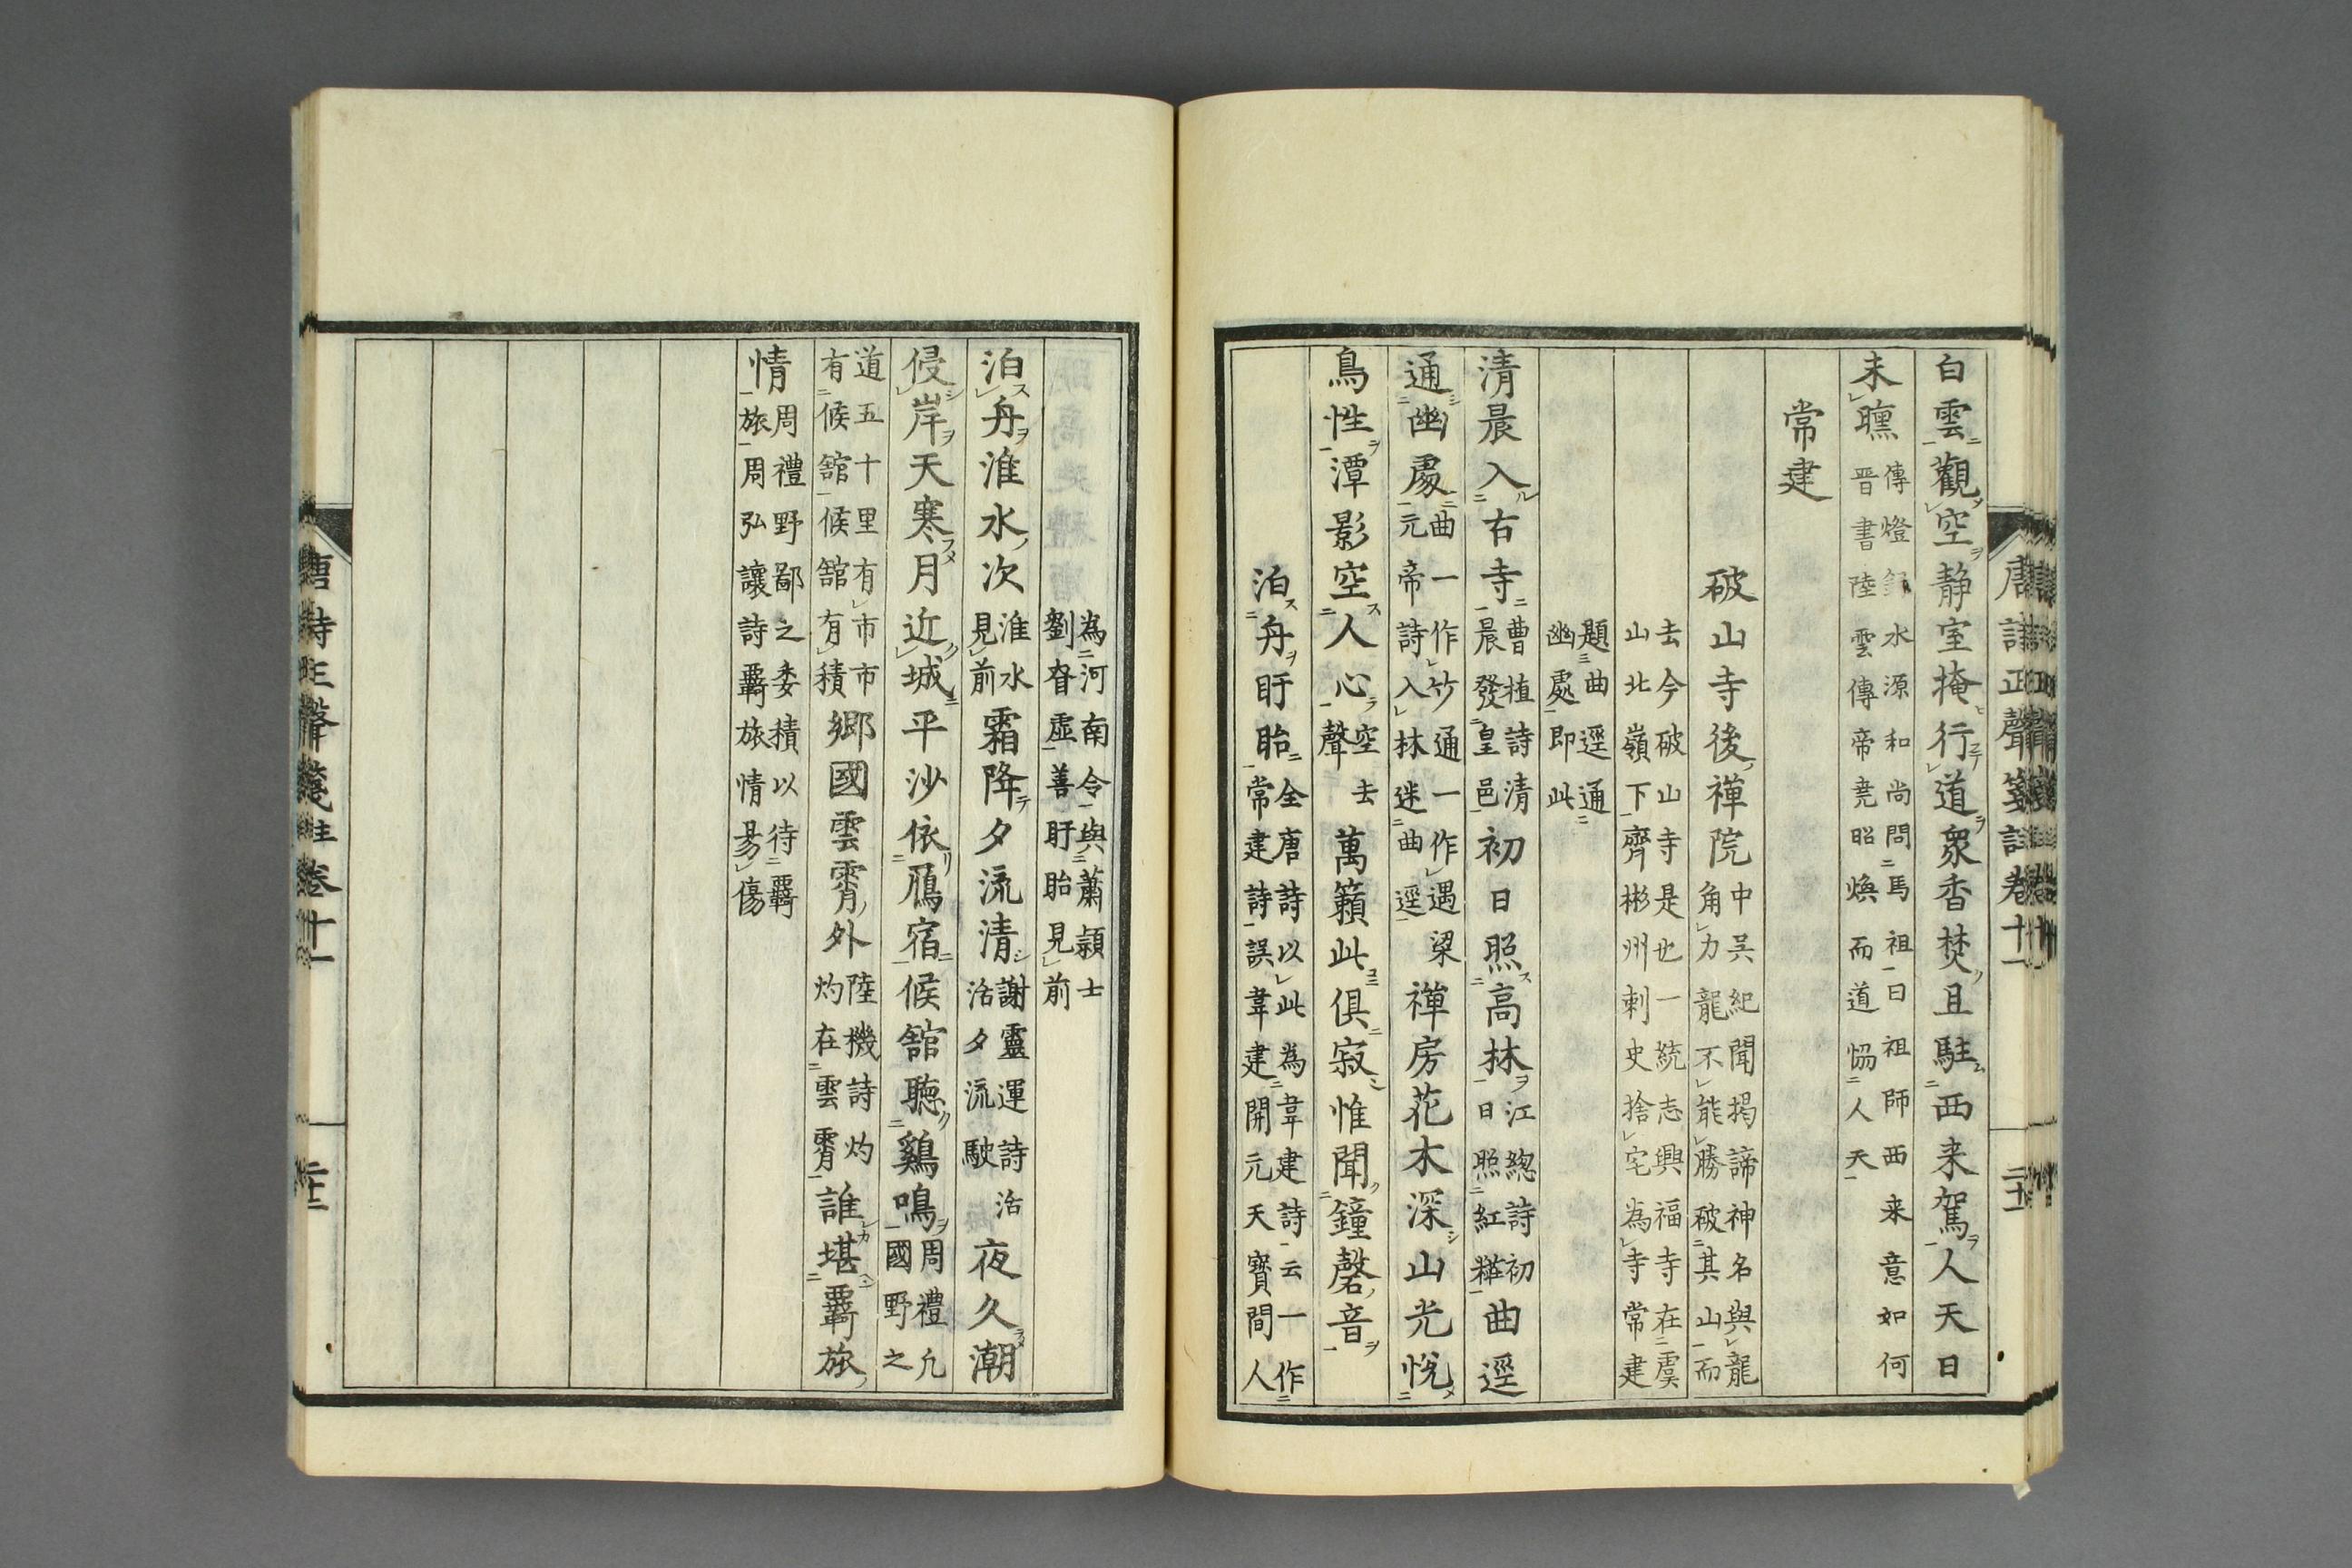 白雲觀空静室掩行道衆香焚且駐西来駕人天日
未曛 傳燈録水源和尚問馬祖曰祖師西来意如何
晋書陸雲傳帝尭昭焕而道恊人天
常建
破山寺後禅院 中吴紀聞掲諦神名與龍
角力龍不能勝破其山而
去今破山寺是也一統志興福寺在虞
山北嶺下齊彬州刺史捨宅為寺常建
題曲逕通
幽處即此
清晨入古寺 曹植詩清
晨發皇邑 初日照高林 江總詩初
日照紅粧 曲逕
通幽處 曲一作竹通一作遇梁
元帝詩入林迷曲逕 禅房花木深山光悦
鳥性潭影空人心 空去
聲 萬籟此俱寂惟聞鐘磬音
泊舟盱眙 全唐詩以此為韋建詩云一作
常建詩誤韋建開元天寳間人
為河南令與蕭頴士
劉眘虚善盱眙見前
泊舟淮水次 淮水
見前 霜降夕流清 謝靈運詩活
活夕流駛 夜久潮
侵岸天寒月近城平沙依鴈宿候舘聴鷄鳴 周禮凢
國野之
道五十里有市市
有候舘候舘有積 郷國雲霄外 陸機詩灼
灼在雲霄 誰堪羇旅
情 周禮野鄙之委積以待羇
旅周弘讓詩羇旅情易傷
唐詩正聲箋註卷十一
二十一
唐詩正聲箋註卷十一
二十二